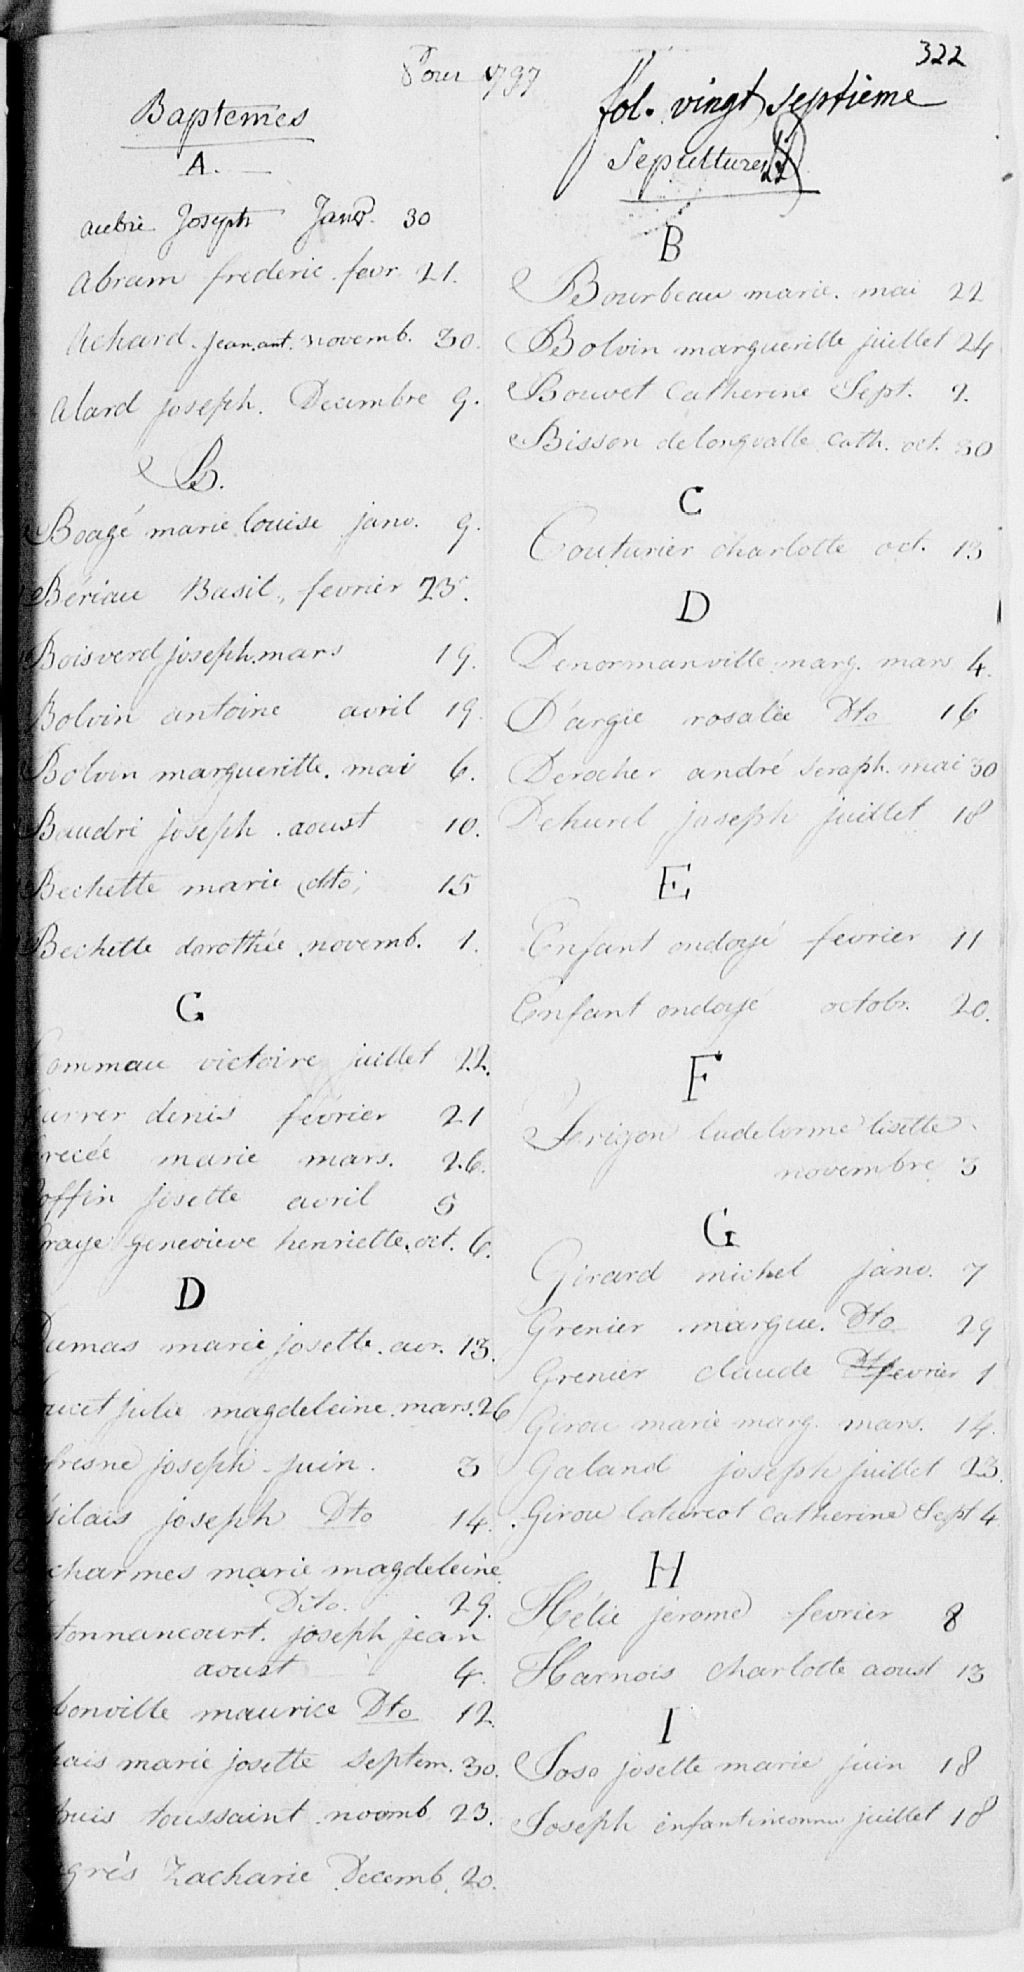 322
Pour 1797
fol. vingt septieme
Baptemes
A.
aubrie Joseph Janvr. 30
Abram frederic fevr. 21.
Achard. jean ant. novemb. 30.
Alard joseph. Decembre 9.
B.
Boagé marie louise janv. 9.
Beriau Basil, fevrier 25.
Boisverd joseph. mars 19.
Bolvin antoine avril 19.
Bolvin margueritte. mai 6.
Baudri joseph. aoust 10.
Bechette marie dto. 15
Bechette dorothée novemb. 1.
C
ommau victoire juillet 22.
urrer denis fevrier 21
marie mars. 26.
offin josette avril 5
raye Genevieve henriette. oct. 6.
D
umas marie josette. avr. 13.
ucet julie magdeleine. mars. 26
fresne joseph juin. 3
silais joseph Dto 14.
charmes marie magdeleine
Dito. 29.
tonnancourt. joseph jean
aoust 4.
bonville maurice Dto 12.
ais marie josette septem. 30.
puis toussaint novemb 23.
grès Zacharie Decemb. 20.
Sepultures
B
Bourbeau marie. mai 22
Bolvin margueritte juillet 24
Bouvet Catherine Sept. 2.
Bisson delongvalle Cath. oct. 30
C
Couturier charlotte oct. 13
D
Denormanville marg. mars 4.
D'argie rosalie Dto 16
Derocher andré seraph. mai 30
Dehurel joseph juillet 18
E
Enfant ondoyé fevrier 11
Enfant ondoyé octobr. 20.
F
Frigon ladelorme lisette
novembre 3
G
Girard michel janv. 7
Grenier margue. Dto 29
Grenier claude fevrier 1
Girou marie marg. mars. 14.
Galand joseph juillet 23.
Girou laturcot Catherine Sept 4
H
Hélie jerome fevrier 8
Harnois charlotte aoust 13
I
Joso josette marie juin 18
Joseph enfant inconnu juillet 18